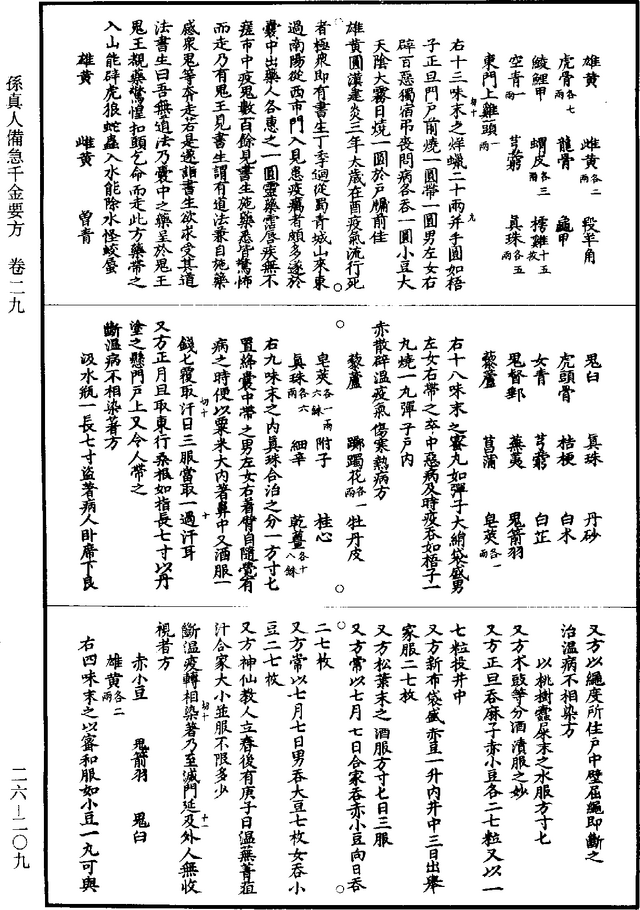 雄黄　雌黄各二兩　羖羊角
虎骨各七兩　龍骨　龜甲
鯪鯉甲　蝟皮各三兩　樗雞十五枚
空青一兩　芎藭　真珠各五兩
東門上雞頭一兩
初十　九
右十三味末之烊蠟二十兩并手圓如梧
子正旦門户前燒一圓帶一圓男左女右
辟百惡獨宿弔喪問病各吞一圓小豆大
天陰大霧日燒一圓於戶牖前佳
雄黄圓漢建炎三年大歲在酉疫氣流行死
者極衆即有書生丁季迴從蜀青城山來東
過南陽從西市門入見患疫癘者頗多遂於
囊中出藥人各惠之一圓靈藥霑唇疾無不
瘥市中疫鬼數百餘見書生施藥悉皆驚怖
而走乃有鬼王見書生謂有道法兼自施藥
感衆鬼等奔走若是遂詣書生欲求受其道
法書生曰吾無道法乃囊中之藥呈於鬼王
鬼王覩藥驚惶扣頭乞命而走此方藥帶之
入山能辟虎狼蛇蟲入水能除水怪蛟蜃
雄黄　雌黄　曾青
鬼臼　真珠　丹砂
虎頭骨　桔梗　白朮
女青　芎藭　白芷
鬼督郵　蕪荑　鬼箭羽
藜蘆　菖蒲　皂莢各一兩
右十八味末之蜜丸如彈子大絹袋盛男
左女右帶之卒中惡病及時疫吞如梧子一
丸燒一丸彈子戶内
赤散辟溫疫氣傷寒熱病方
藜蘆　躑躅花各一兩　牡丹皮
皂莢各一兩六銖　附子　桂心
真珠各六兩　細辛　乾薑各十八銖
右九味末之内真珠合治之分一方寸七
置絳囊中帶之男左女右着臂自隨覺有
病之時便以粟米大内著鼻中又酒服一
初十　十
錢七覆取汗日三服當取一過汗耳
又方正月旦取東行桑根如指長七寸以丹
塗之懸門戶上又令人帶之
斷溫病不相染著方
汲水瓶一長七寸盜著病人卧席下良
又方以繩度所住戶中壁屈繩即斷之
治溫病不相染方
以桃樹蠹屎末之水服方寸七
又方朮豉等分酒漬服之妙
又方正旦吞麻子赤小豆各二七粒又以一
七粒投井中
又方新布袋盛赤豆一升内井中三日出舉
家服二七枚
又方松葉末之酒服方寸七日三服
又方常以七月七日合家吞赤小豆向日吞
二七枚
又方常以七月七日男吞大豆七枚女吞小
豆二七枚
又方神仙教人立春後有庚子日温蕪菁葅
汁合家大小並服不限多少
初十　十一
斷溫疫轉相染著乃至滅門延及外人無收
視者方
赤小豆　鬼箭羽　鬼臼
雄黄各二兩
右四味末之以蜜和服如小豆一丸可與
孫真人備急千金要方　卷二九
二六—二〇九